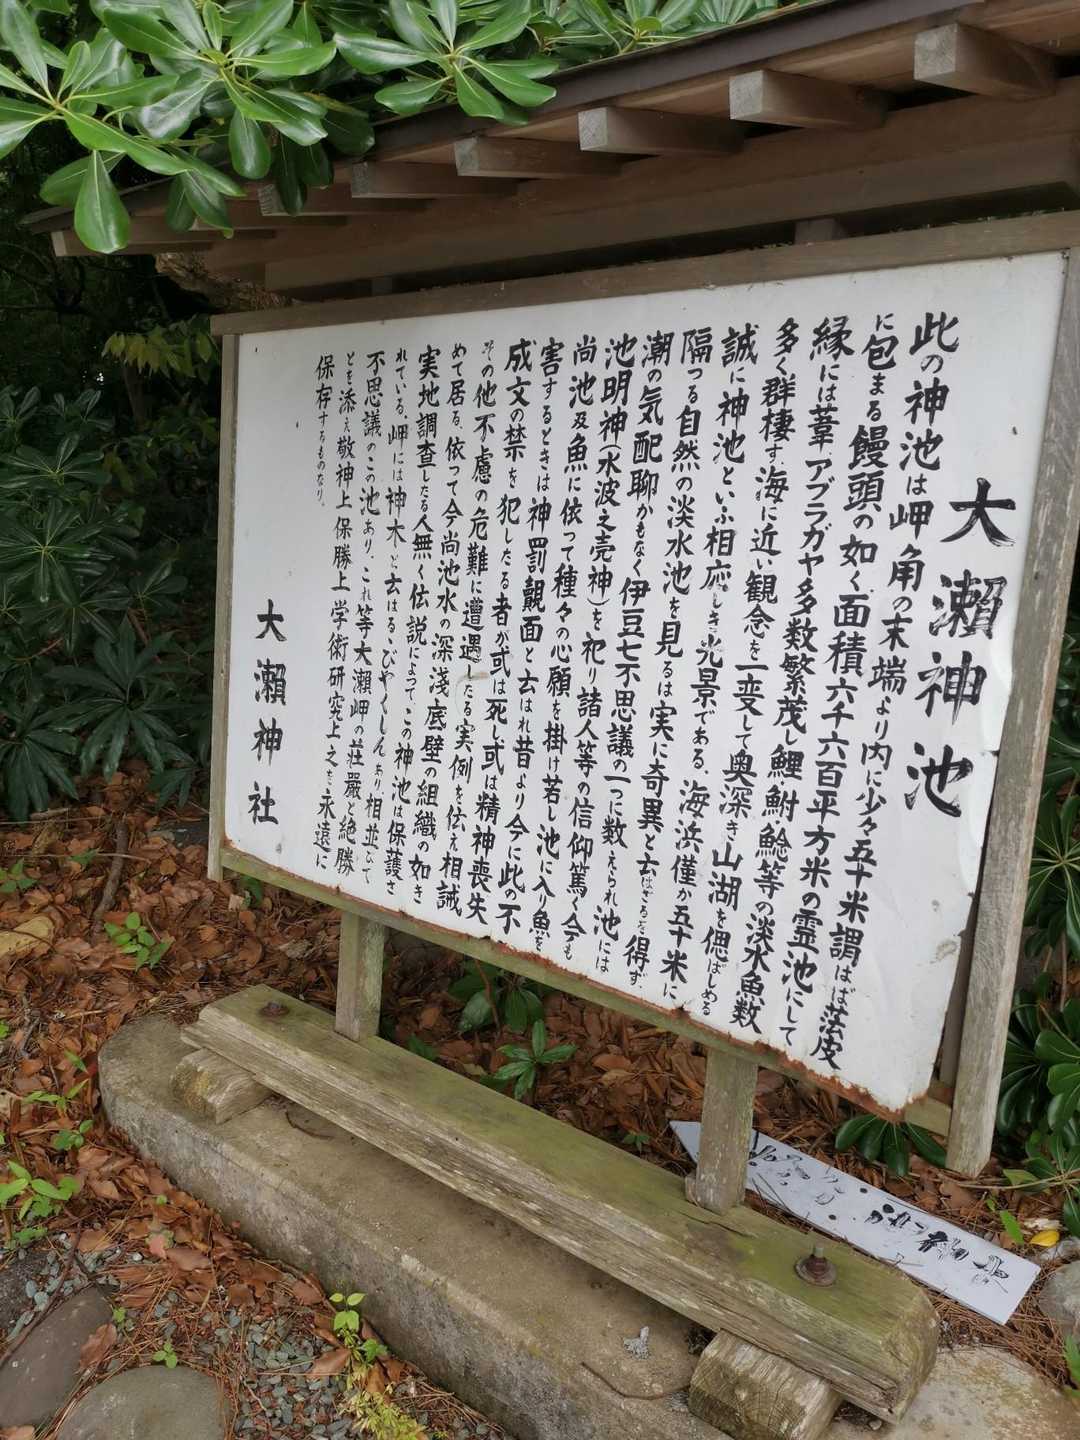 大瀬神池
此の神池は岬角の末端より内に少々五十米謂はば落皮
に包まる饅頭の如く面積六千六百平方米の霊池にして
縁には葦、アブラガヤ多数繁茂し鯉鮒鯰等の淡水魚数
多く群棲す、海に近い観念を一変して奥深き山湖を偲ばしめる
誠に神池といふ相応しき光景である、海浜僅か五十米に
隔つる自然の淡水池を見るは実に奇異と云はざるを得ず、
潮の気配聊かもなく伊豆七不思議の一つに数えられ池には
池明神(水波之売神)を祀り諸人等の信仰篤く今も
尚池及魚に依って種々の心願を掛け若し池に入り魚を
害するときは神罰覿面と云はれ昔より今に此の不
成文の禁を犯したる者が或は死し、或は精神喪失
その他不慮の危難に遭遇したる実例を伝え相誡
めて居る、依って今尚池水の深淺底壁の組織の如き
実地調査したる人無く伝説によって、この神池は保護さ
れている、岬には神木と云はるゝびやくしんあり、相並びて
不思議のこの池あり、これ等大瀬岬の荘厳と絶勝
とを添え敬神上保勝上学術研究上之を永遠に
保存するものなり。
大瀬神社